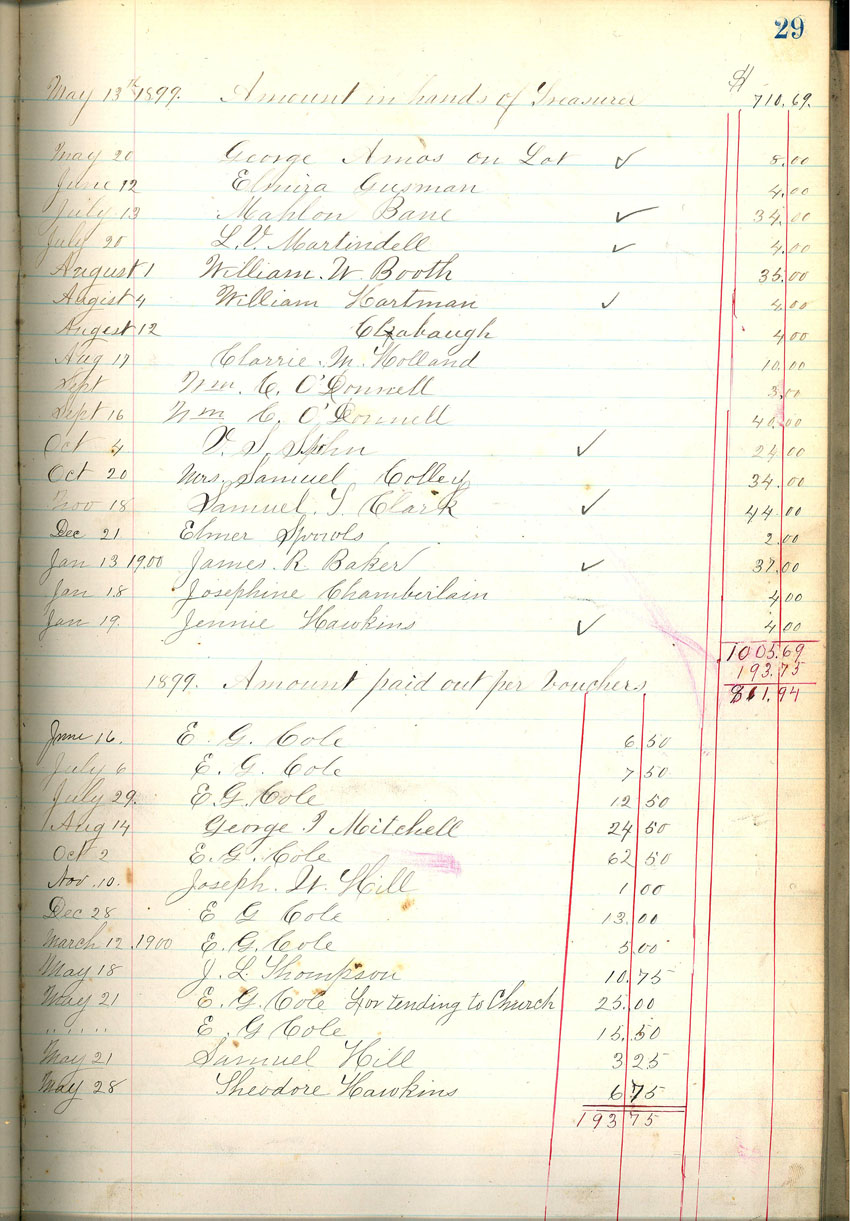 29
May 13th 1899. Amount in hands of Treasurer $ 710.69.
May 20 George Amos on Lot ✓ 8.00
June 12 Elmira Gusman 4.00
July 13 Mahlon Bane ✓ 34.00
July 20 L.V. Martindell ✓ 4.00
August 1 William. W. Booth 35.00
Augist 4 William Hartman ✓ 4.00
August 12 Clabaugh 4.00
Aug 17 Clarrie. M. Holland 10.00
Sept Wm. C. O'Donnell 3.00
Sept 16 Wm C. O'Donnell 40.00
Oct 4 V. S. Sphn ✓ 24 00
Oct 20 Mrs. Samuel Colley 34.00
Nov 18 Samuel. S. Clark ✓ 44 00
Dec 21 Elmer Sprowls 2.00
Jan 13 1900 James. R Baker ✓ 37.00
Jan 18 Josephine Chamberlain 4 00
Jan 19. Jennie Hawkins ✓ 4 00
1005.69
193.75
1899. Amount paid out per Vouchers
811.94
June 16. E. G. Cole 6 50
July 6 E. G. Cole 7 50
July 29. E.G. Cole 12 50
Aug 14 George I Mitchell 24 50
Oct 2 E. G. Cole 62 50
Nov. 10. Joseph. W. Hill 1 00
Dec 28 E G Cole 13.00
March 12.1900 E. G. Cole 5.00
May 18 J. L. Thompson 10.75
May 21 E. G. Cole For tending to Church 25.00
" " " " " E. G Cole 15.50
May 21 Samuel Hill 3 25
May 28 Theodore Hawkins 6 75
193 75